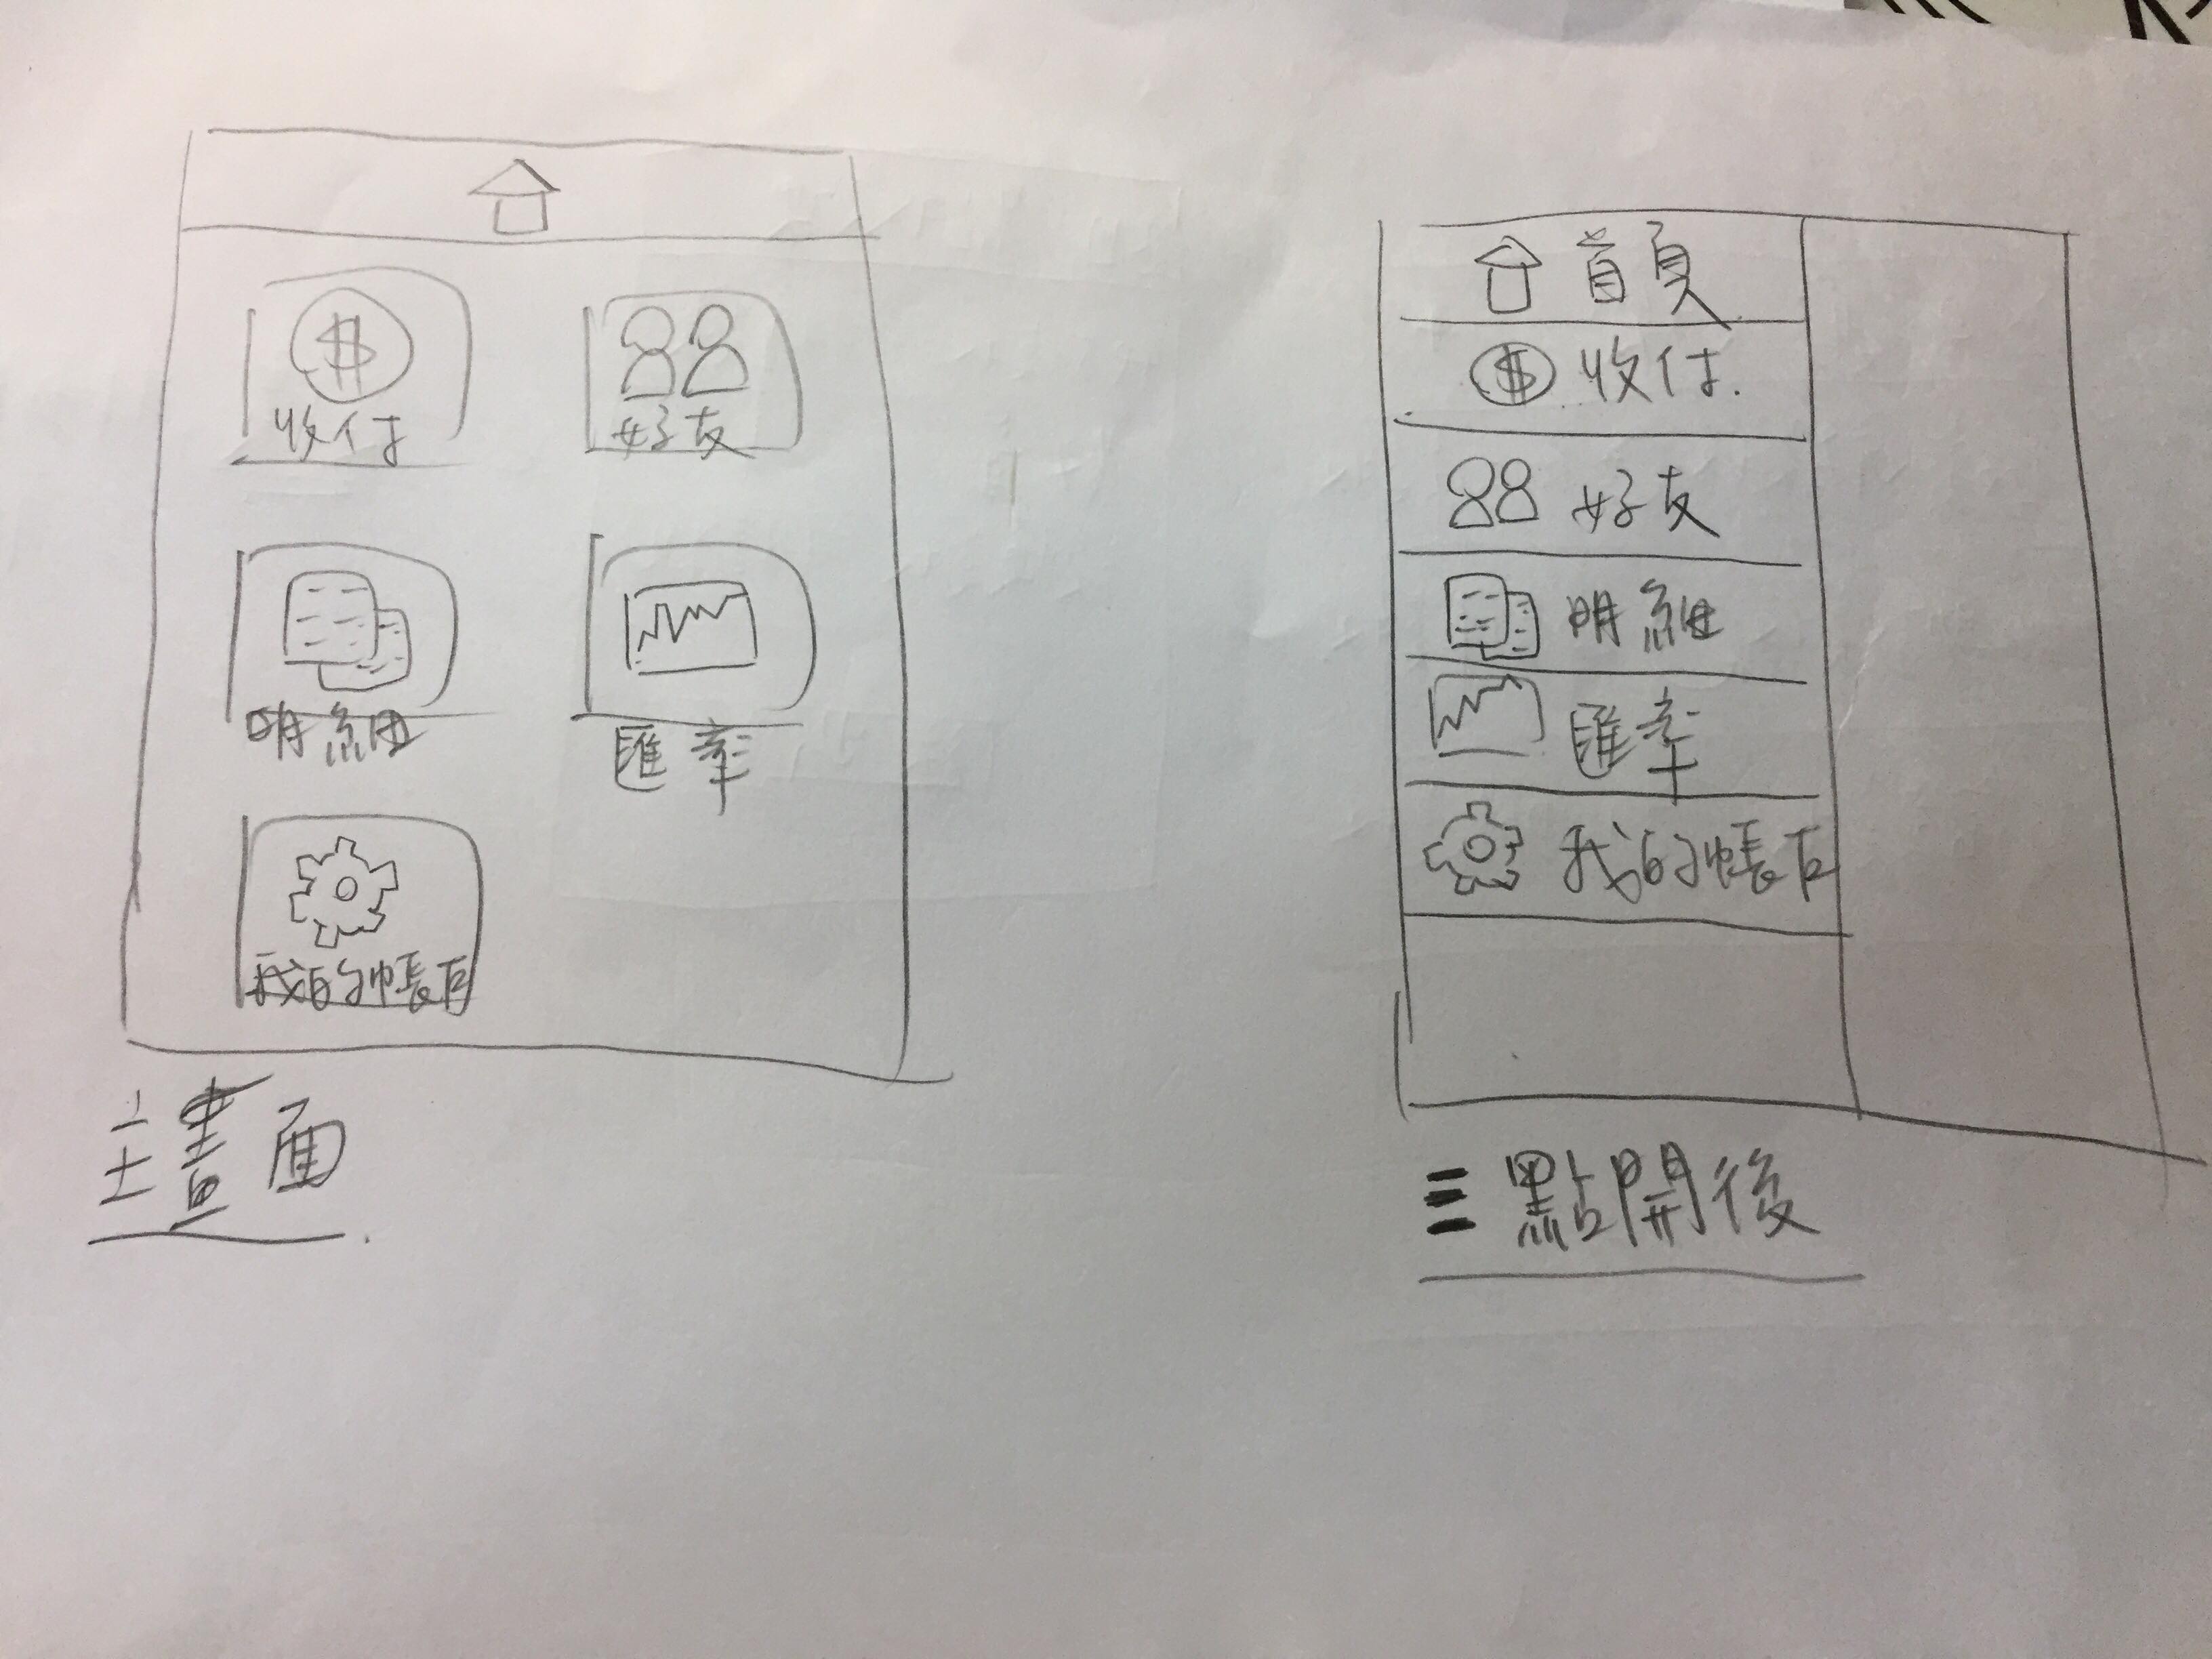 收付
好友
明細
匯率
我的帳戶
主畫面
首頁
$ 收付
好友
明細
匯率
我的帳戶
三 點開後